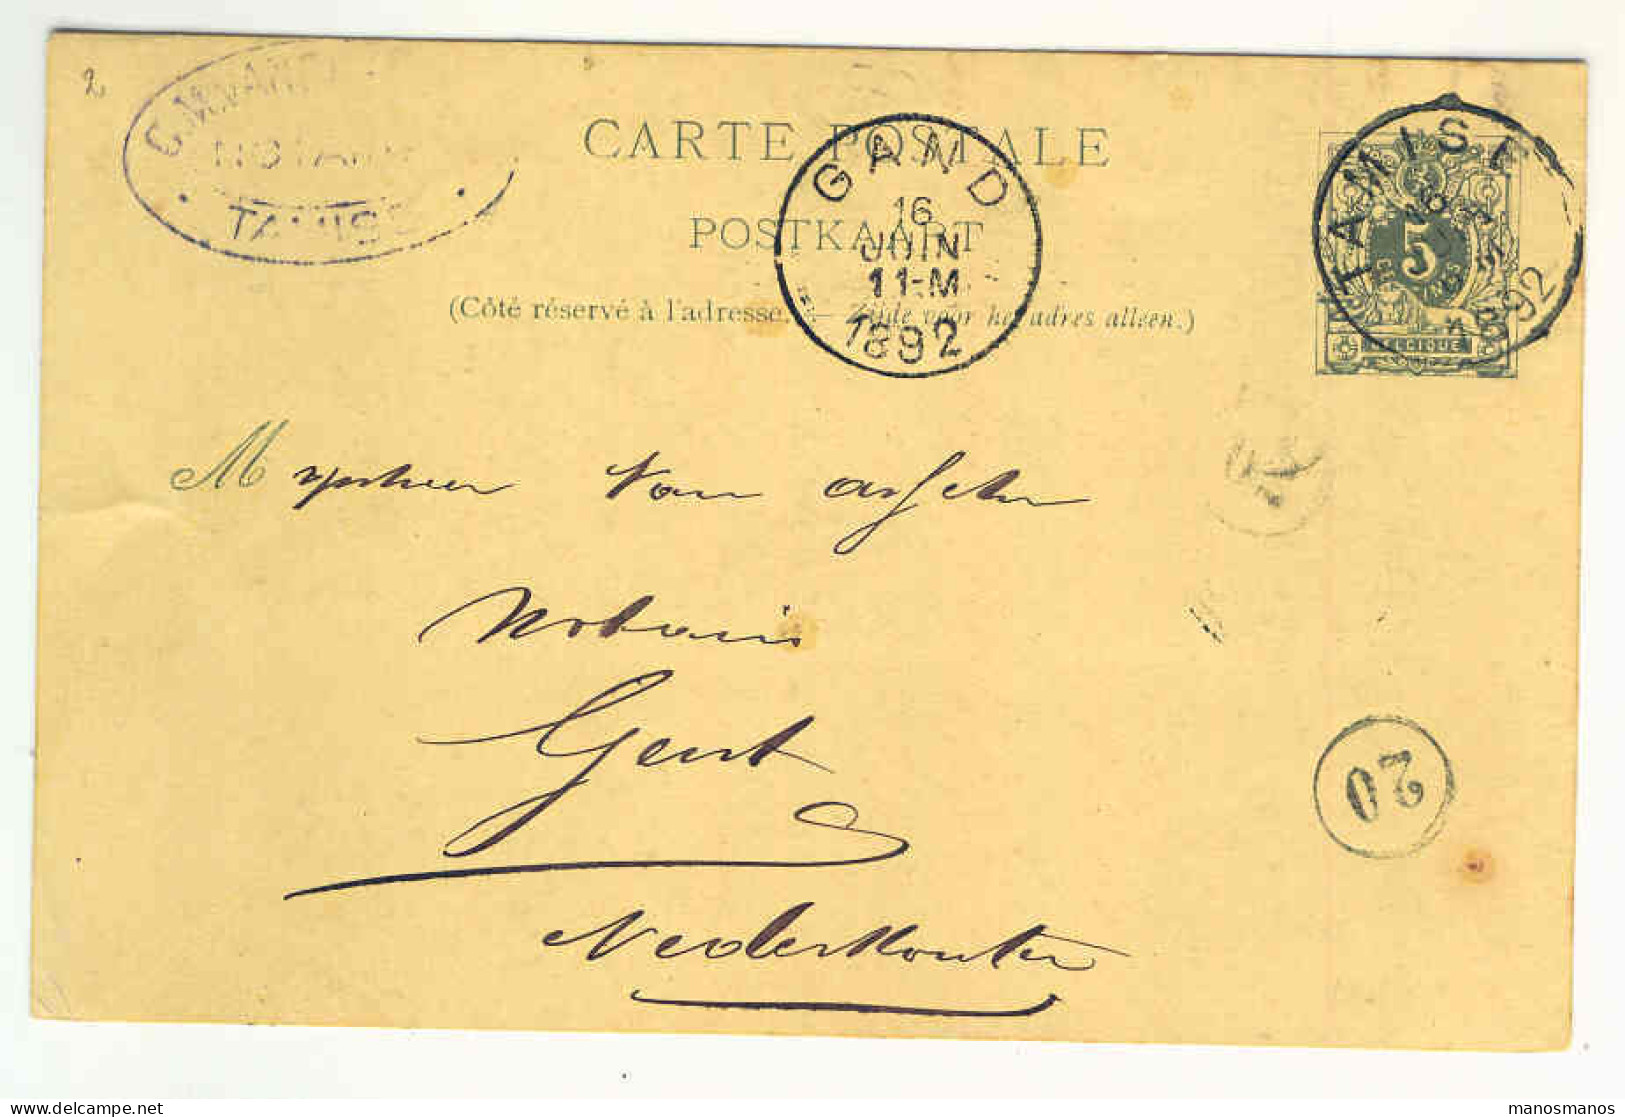 2
NOTAIRE
TAMISE
CARTE POSTALE
POSTKAART
(Côté réservé à l'adresse. — Zijde voor het adres alleen.)
GAND
16
JUIN
11-M
1892
TAMISE
1892
5
BELGIQUE
Mynheer Van
Notaris
Gent
Nederkouter
20
manosmanos